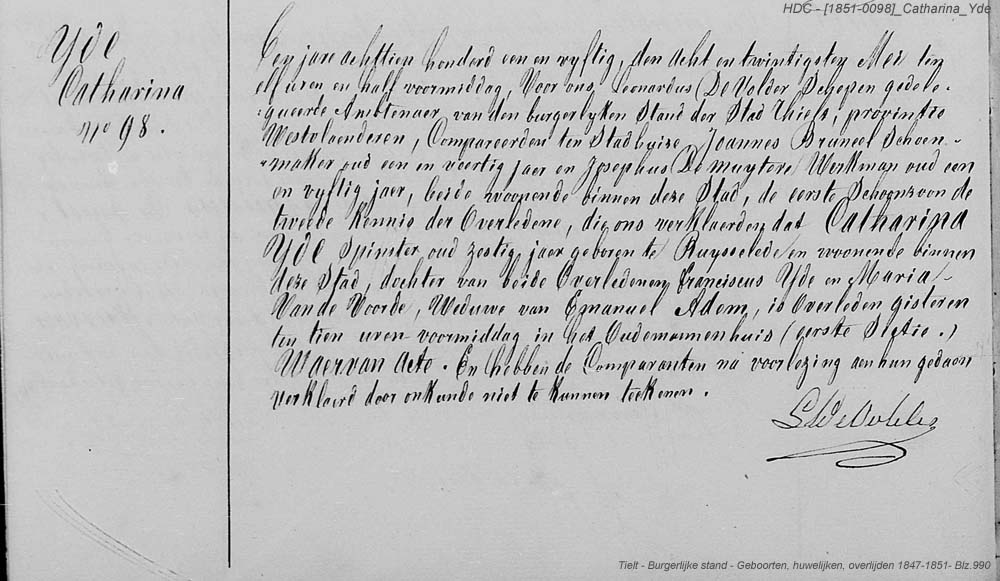 HDC - [1851-0098]_Catharina_Yde
Yde
Catharina
N° 98.
Een jare achttien honderd een en vyftig, den acht en twintigsten Mei ten
elf uren en half voormiddag, Voor ons, Leonardus De Volder Schepen gedele-
-gueerde Ambtenaer van den burgerlyken Stand der Stad Thielt, provintie
Westvlaenderen, Compareerden ten Stadhuize Joannes Bruneel Schoen-
-maker oud een en veertig jaer en Josephus Demuytere Werkman oud een
en vyftig jaer, beide woonende binnen deze Stad, de eerste Schoonzoon de
tweede Kennis der Overledene, die ons verklaerden dat Catharina
Yde Spinster, oud zestig jaer geboren te Ruysselede en woonende binnen
deze Stad, dochter van beide Overledenen Franciscus Yde en Maria
Vande Voorde, Weduwe van Emanuel Adem, is Overleden gisteren
ten tien uren voormiddag in het Oudemannenhuis (eerste Sectie.)
Waervan Acte. En hebben de Comparanten na voorlezing aen hun gedaen
verklaerd door onkunde niet te kunnen teekenen.
L De Volder
Tielt - Burgerlijke stand - Geboorten, huwelijken, overlijden 1847-1851- Blz.990